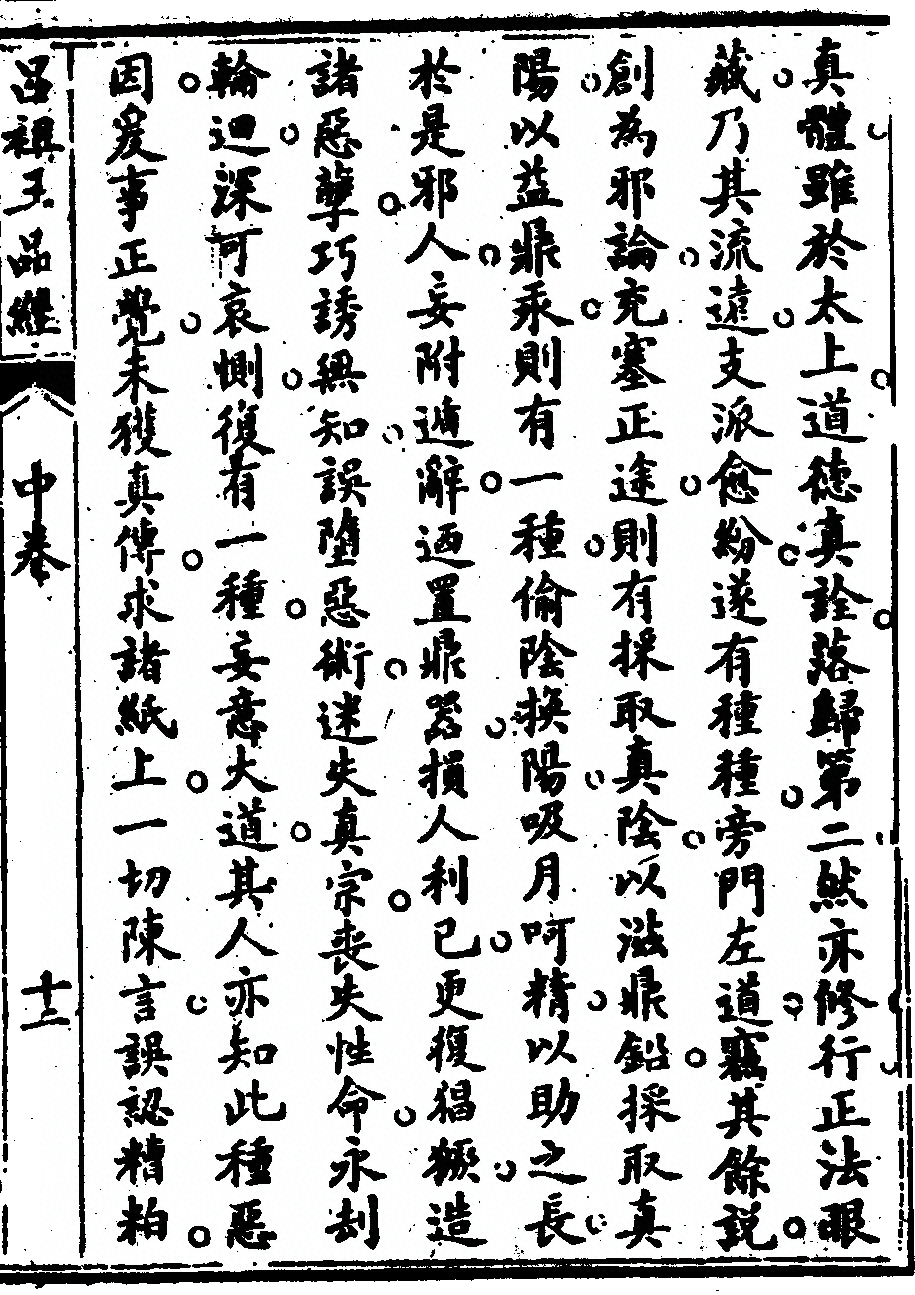 真體雖於太上道德真詮落歸第二然亦修行正法眼
藏乃其流遠支派愈紛遂有種種旁門左道竊其餘説
創為邪論充塞正途則有採取真陰以滋鼎鉛採取真
陽以益鼎汞則有一種偷陰換陽吸月呵精以助之長
於是邪人妄附遁辭迺置鼎器損人利己更復猖獗造
諸惡孽巧誘無知誤墮惡術迷失真宗喪失性命永刦
輪迴深可哀惻復有一種妄意大道其人亦知此種惡
因爰事正覺未獲真傳求諸紙上一切陳言誤認糟粕
呂祖玉品經
中卷
十二